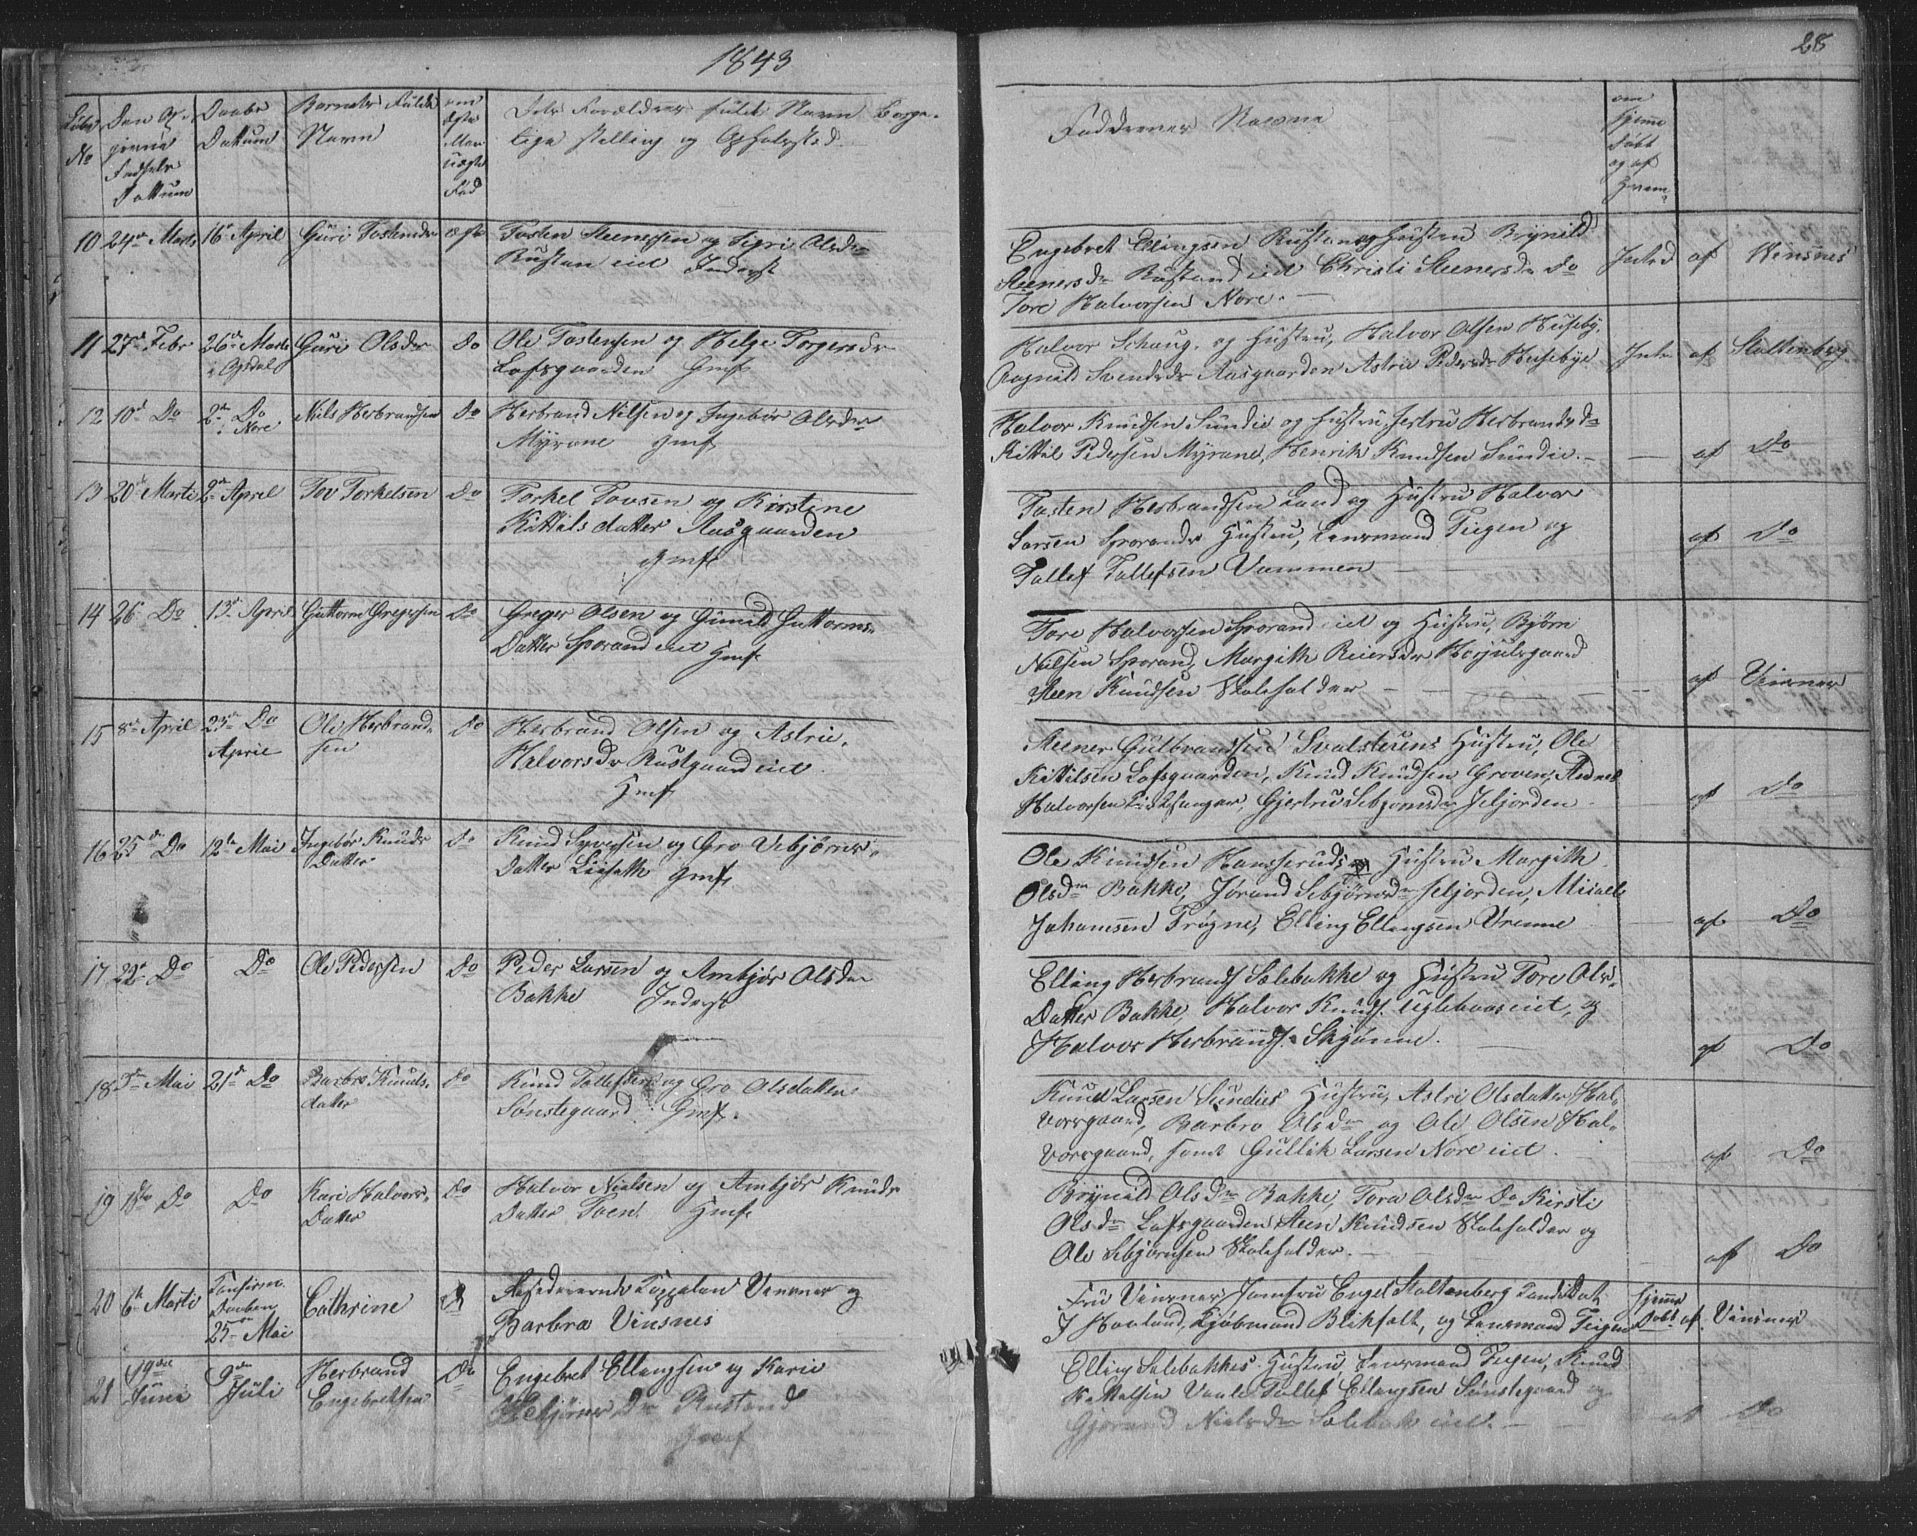 1843
28
Løbe No
Den Op-
givne
Fødsels
Dattum
Daabs
Dattum
Barnets Fulde
Navn
om
ægte
eller
uægte
Fød
Dets Forældres fulde Navn Borger-
lige stilling og Opholdssted.
Faddernes Navne
om
hjemme
døbt
og af
hvem?
10 24de Marts 16de April Guri Tostensdr ægte Tosten Steenersen og Sigri Olsdr
Rustan eiet Inderst
Engebret Ellingsen Rustan og Hustru Brynild
Steenersdr Rustand eiet Christi Steenersdr Do
Tore Halvorsen Nore. —
Introd af Vinsnes
11 27de Febr 26de Marts i Opdal Guri Olsdr Do Ole Tostensen og Helge Torgersdr
Lofsgaarden Gmf
Halvor Schaug og Hustru, Halvor Olsen Huseby,
Ragnild Svendsdr Aasgaarden Astrie Pedersdr Husebye
Intr af Stoltenberg
12 10de Do 2de Do i Nore Niels Herbransen Do Herbrand Nilsen og Ingebør Olsdr
Myrane Gmf
Halvor Knudsen Sundie og Hustru, Jertru Herbrandsdr
Kittil Pedersen Myrane, Henrik Knudsen Sundie. —
af Do
13 20de Marti 2de April Tov Torkelsen Do Torkel Tovsen og Kirstine
Kittilsdatter Aasgaarden
Gmf
Tosten Herbrandsen Land og Hustru Halvor
Larsen Sporands Hustru, Lensmand Teigen og
Tollef Tollefsen Vammen —
af Do
14 26 Do 13de April Guttorm Gregersen Do Greger Olsen og Gunild Guttorms-
Datter Sporand eiet Gmf
Tore Halvorsen Sporand eiet og Hustru, Bjørn
Nielsen Sporand, Margith Reiersdr Horjulsgaard
Steen Knudsen Skoleholder —
af Vinsnes
15 8de April 23de Do April Ole Herbrand-
sen Do Herbrand Olsen og Astrie
Halvorsdr Rustgaard eiet
Gmf
Steener Gulbrandsen Svalsteins Hustru, Ole
Kittilsen Lofsgaarden, Knud Knudsen Groven,
Halvorsen Gjertru Sebjørnsdr Seljorden
af Do
16 25de Do 12te Mai Ingebør Knuds
Datter Do Knud Syversen og Gro Sebjørns-
Datter Gmf
Ole Knudsen Hansseruds Hustru Margith
Olsdr Bakke, Jørand Sebjørnsdr Seljorden,
Johannsen Trøgne, Elling Ellingsen Vrenne
af Do
17 22de Do Do Ole Pedersen Do Peder Larsen og Ambjør Olsdr
Bakke Inderst
Elling Herbrands. Sælebakke og Hustru Tore Ols-
Datter Bakke, Halvor Knuds. eiet, og
Halvor Herbrands. Skjønne.
af Do
18 Mai 21de Do Barbro Knuds-
datter Do Knud Tollefsen og Gro Olsdatter
Sønstegaard Gmf.
Knud Larsen Sundies Hustru, Astri Olsdatter Hal-
vorsgaard, Barbro Olsdr og Ole Olsen Hal-
vorsgaard, samt Gullik Larsen Nore eiet.
af Do
19 18de Do Do Kari Halvors-
Datter Do Halvor Nielsen og Ambjør Knuds
Datter Toen Gmf
Brynild Olsdr Bakke, Tora Olsdr Do Kirsti
Olsdr Lofsgaarden Steen Knudsen Skoleholder og
Ole Sebjørnsen Skoleholder.
af Do
20 6te Marti
Daaben
25de Mai Cathrine Residerende Cappelan Vinsnes og
Barbra Vinsnes
Fru Vinsnes, Jomfru Engel Stoltenberg Candidat
J Hovland, Kjøbmand Blikfelt, og Lensmand Teigen
Hjemme
Døbt af Vinsnes
21 19de
Juni 9de
Juli Herbrand
Engebretsen Do Engebret Ellingsen og Karie
Sebjørnsdr Rustand
Gmf
Elling Selebakkes Hustru, Lensmand Teigen, Knud
Tollef Ellingsen Sønstegaard og
Gjørand Nielsdr Sælebak eiet. —
af Do